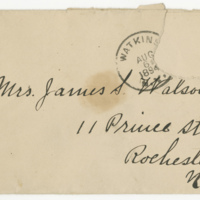 WATKIN
AUG
6
1894
N.Y.
Mrs. James S. Watso
11 Prince St
Rochest
N